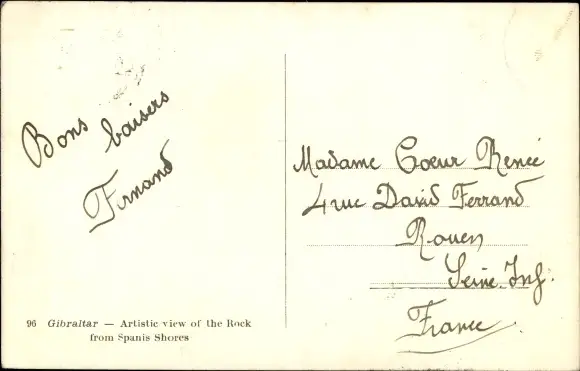 Bons baisers
Fernand
Madame Coeur Renée
4 rue David Ferrand
Rouen
Seine. Inf.
France
96 Gibraltar — Artistic view of the Rock
from Spanis Shores